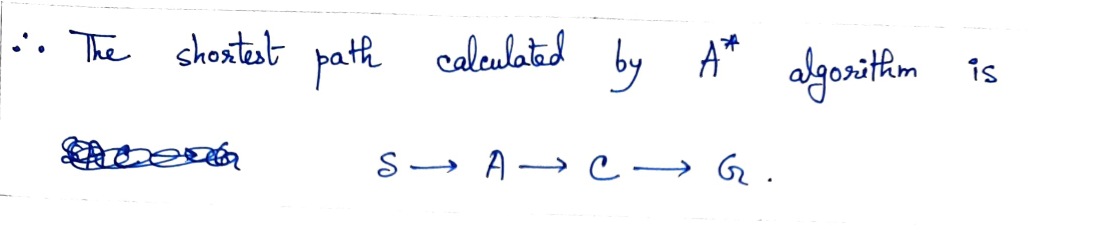 ∴ The shortest path calculated by A* algorithm is
S → A → C → G.